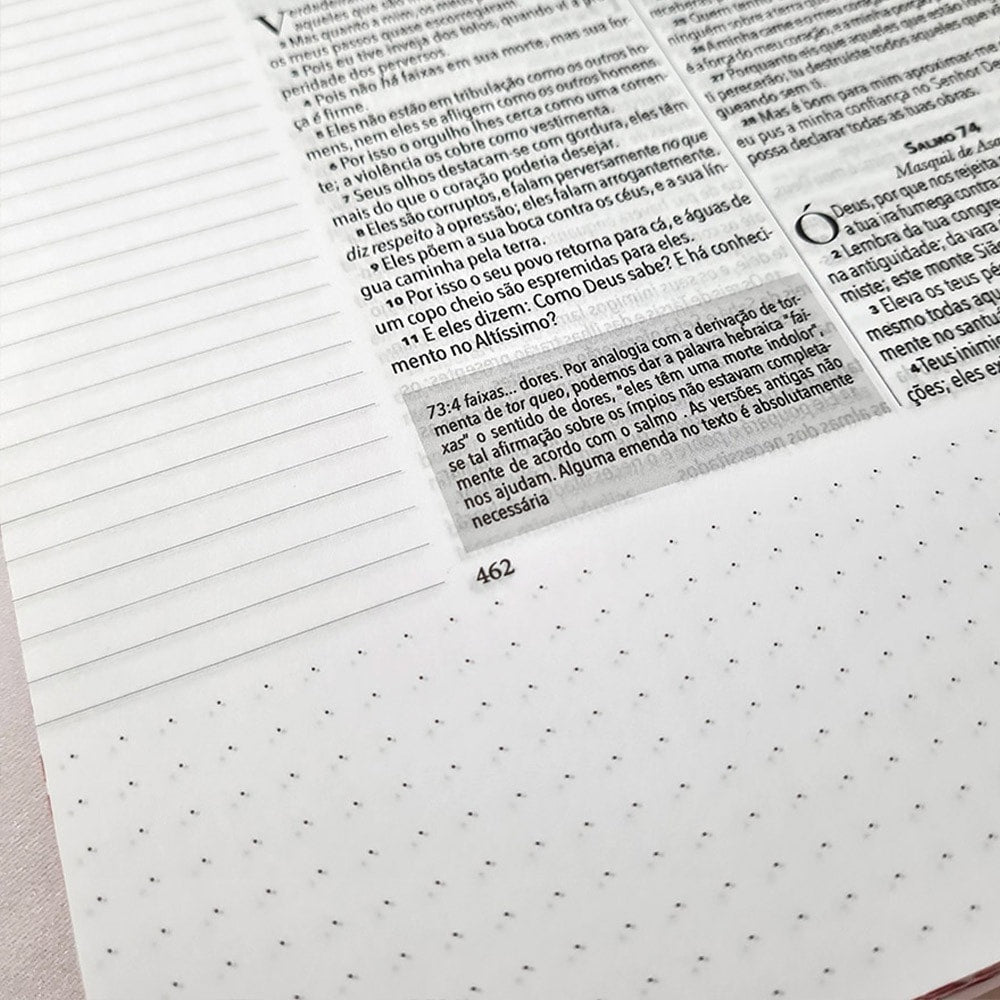 Verdadeiramente
aqueles que são
2 Mas quanto a mim, os meus
os meus passos quase escorregaram.
3 Pois eu tive inveja dos tolos, quando vi a
peridade dos perversos.
4 Pois não há faixas em sua morte, mas sua for-
ça é firme.
5 Eles não estão em tribulação como os outros ho-
mens, nem eles se afligem como os outros homens.
6 Por isso o orgulho lhes cerca como uma corren-
te; a violência os cobre como vestimenta.
7 Seus olhos destacam-se com gordura, eles têm
mais do que o coração poderia desejar.
8 Eles são corruptos, e falam perversamente no que
diz respeito à opressão; eles falam arrogantemente.
9 Eles põem a sua boca contra os céus, e a sua lín-
gua caminha pela terra.
10 Por isso o seu povo retorna para cá, e águas de
um copo cheio são espremidas para eles.
11 E eles dizem: Como Deus sabe? E há conheci-
mento no Altíssimo?
73:4 faixas... dores. Por analogia com a derivação de tor-
menta de tor queo, podemos dar a palavra hebraica "fai-
xas" o sentido de dores, "eles têm uma morte indolor",
se tal afirmação sobre os ímpios não estavam completa-
mente de acordo com o salmo . As versões antigas não
nos ajudam. Alguma emenda no texto é absolutamente
necessária
462
25 Quem tenho
ninguém sobre a
26 Aminha carne
é a força do meu coração, e a minha
27 Porquanto eis que aqueles que estão
perecerão; tu destruíste todos aqueles que
gueando sem ti.
28 Mas é bom para mim aproximar-me
eu pus a minha confiança no Senhor
possa declarar todas as tuas obras.
Salmo 74
Masquil de
Ó Deus, por que nos
a tua ira fumega contra
2 Lembra da tua
na antiguidade; da vara
miste; este monte Sião
3 Eleva os teus pés
mesmo todas
mente no
4 Teus
ções; eles